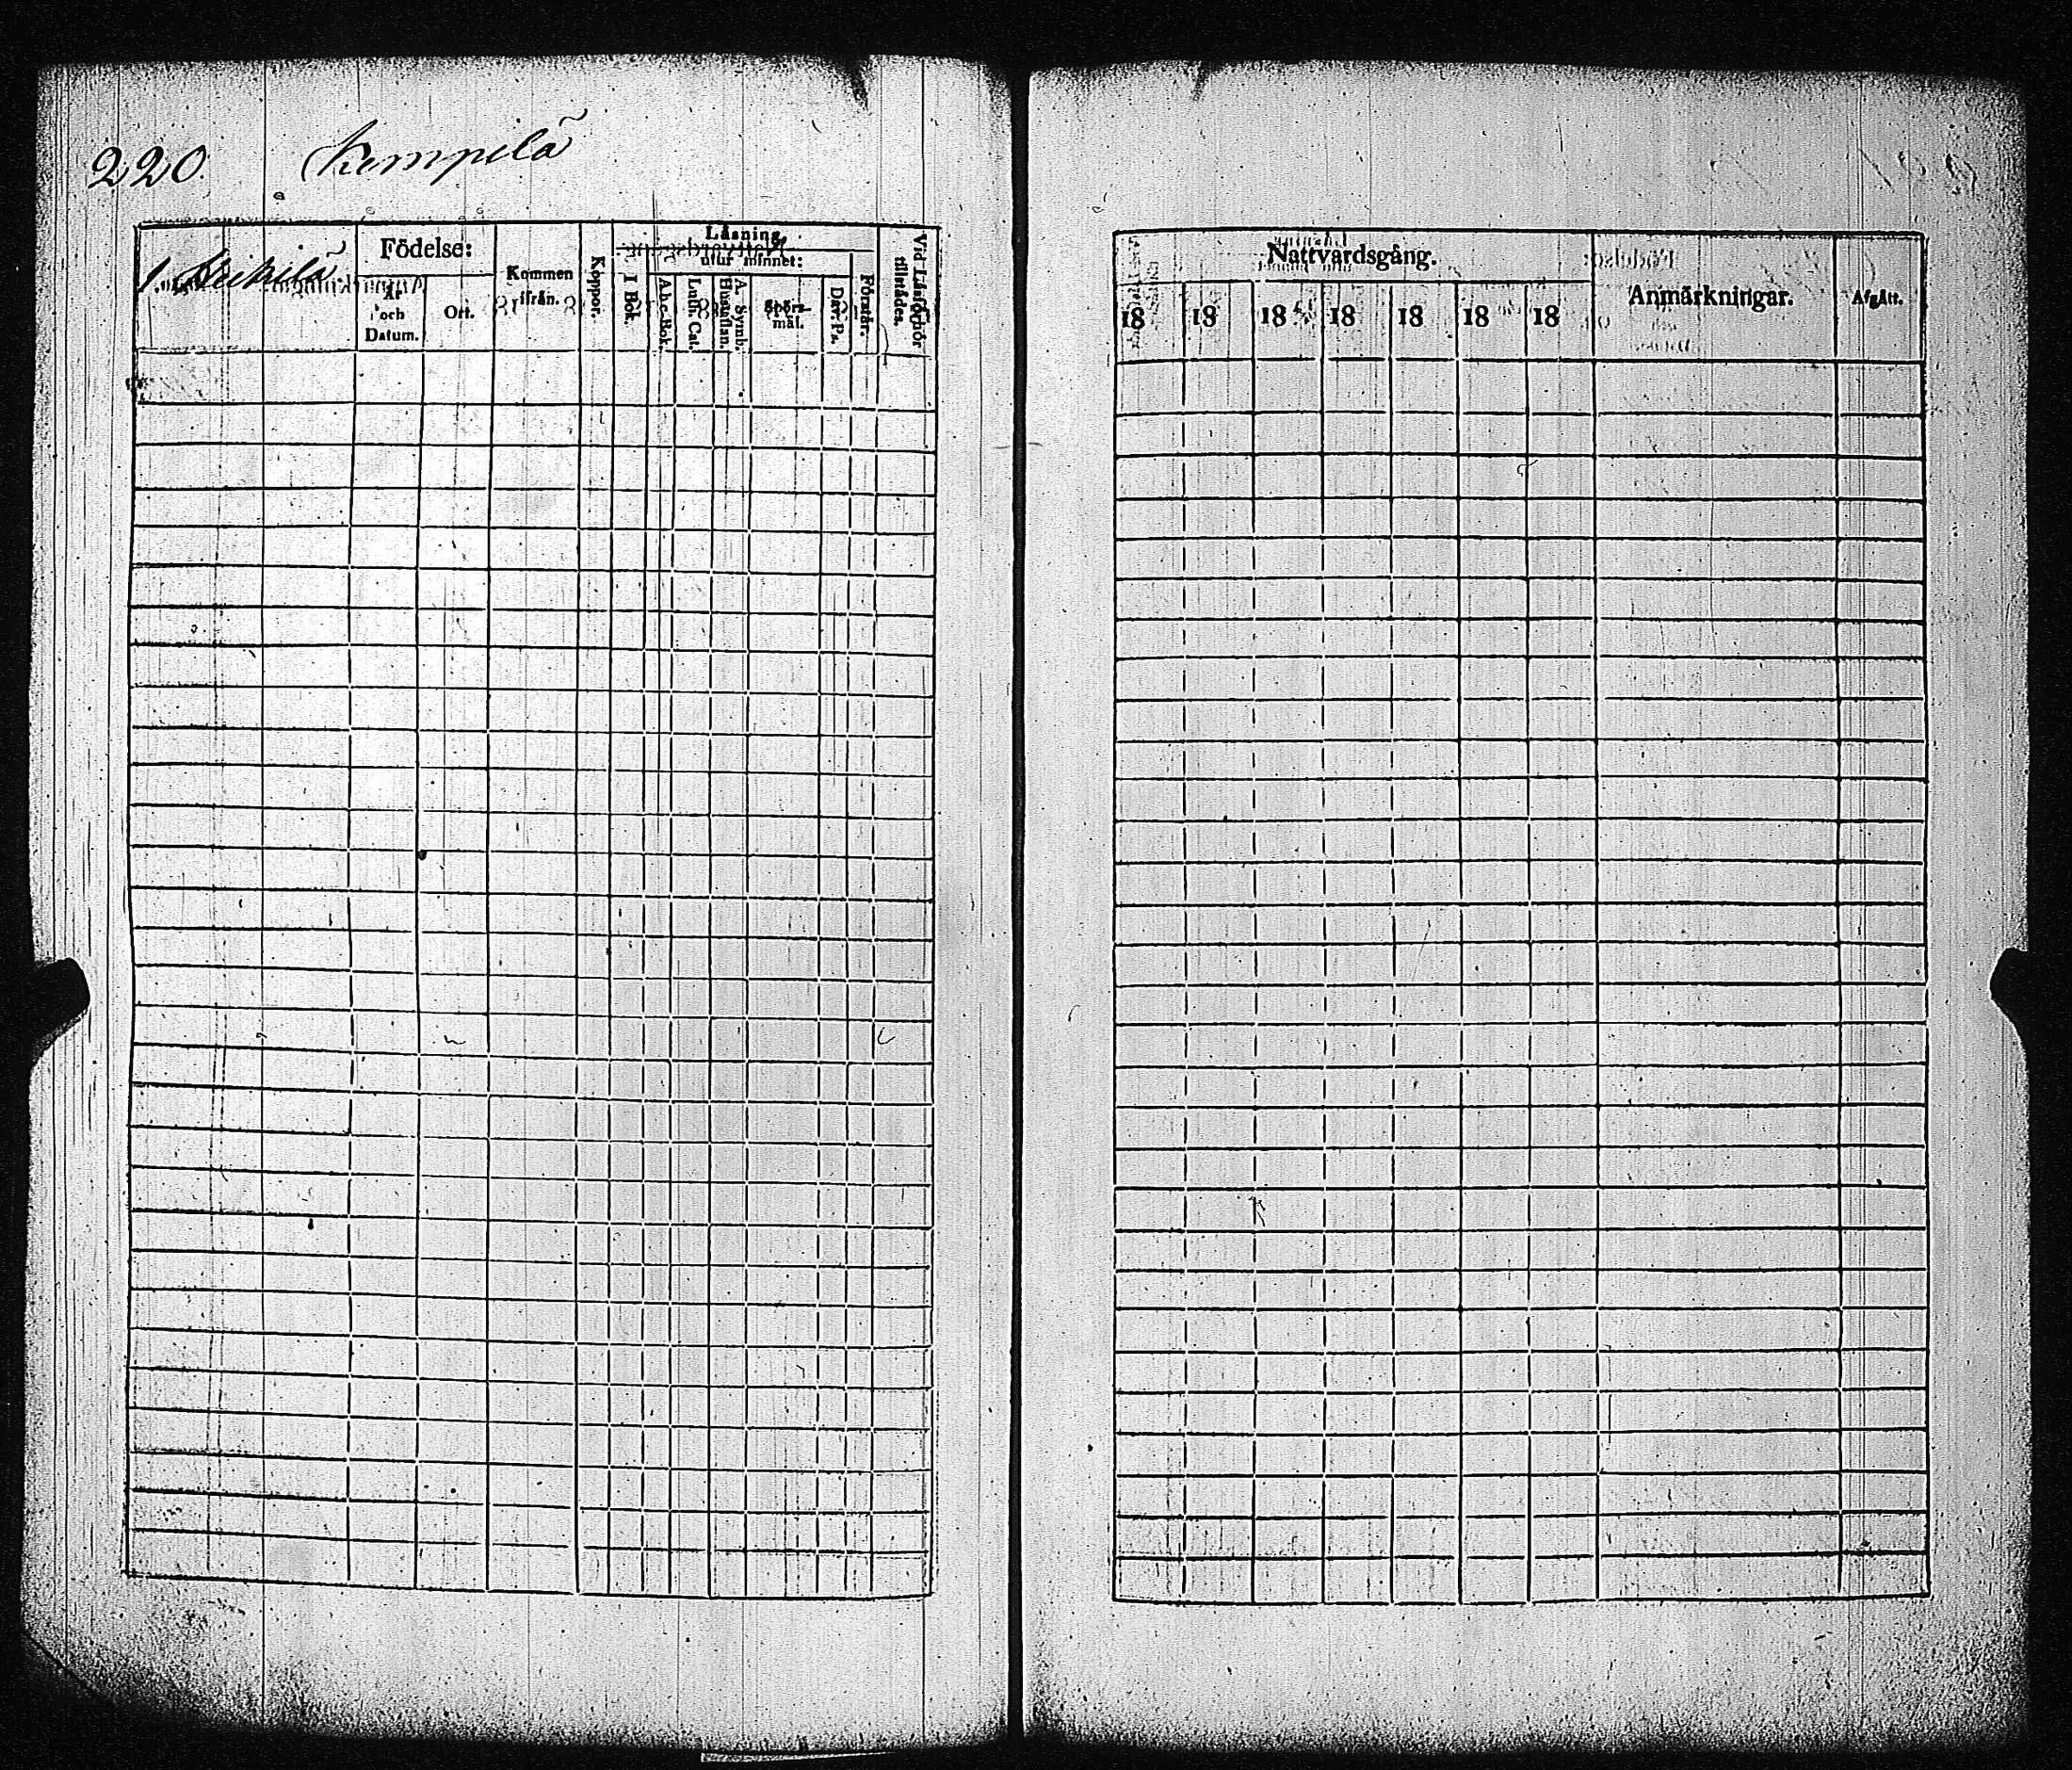 220. Kempilä
1. Heikilä
Födelse:
År och Datum.
Ort.
Kommen ifrån.
Koppor.
Läsning
I Bok.
utur minnet:
A b c-Bok.
Luth. Cat.
A. Symb. Hustaflan.
Spörsmål.
Dav. Ps.
Förstår.
Vid Läsförhör tillstädes.
Nattvardsgång.
18 18 18 18 18 18 18
Anmärkningar.
Afgått.